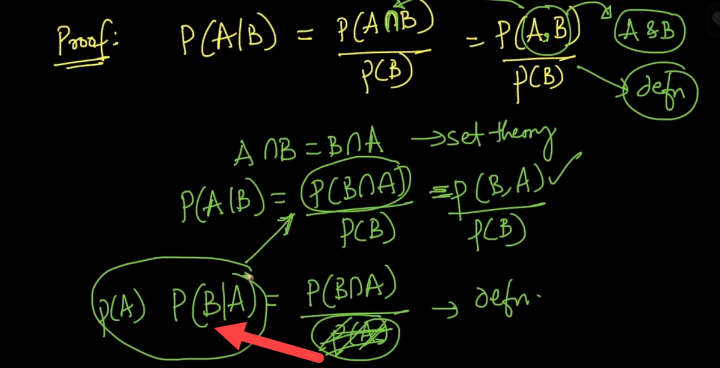 Proof: P(A|B) = P(A∩B) / P(B) = P(A,B) / P(B) → A & B → defn
A∩B = B∩A → set theory
P(A|B) = P(B∩A) / P(B) = P(B,A) / P(B) ✓
P(A) P(B|A) = P(B∩A) / P(A) → defn.